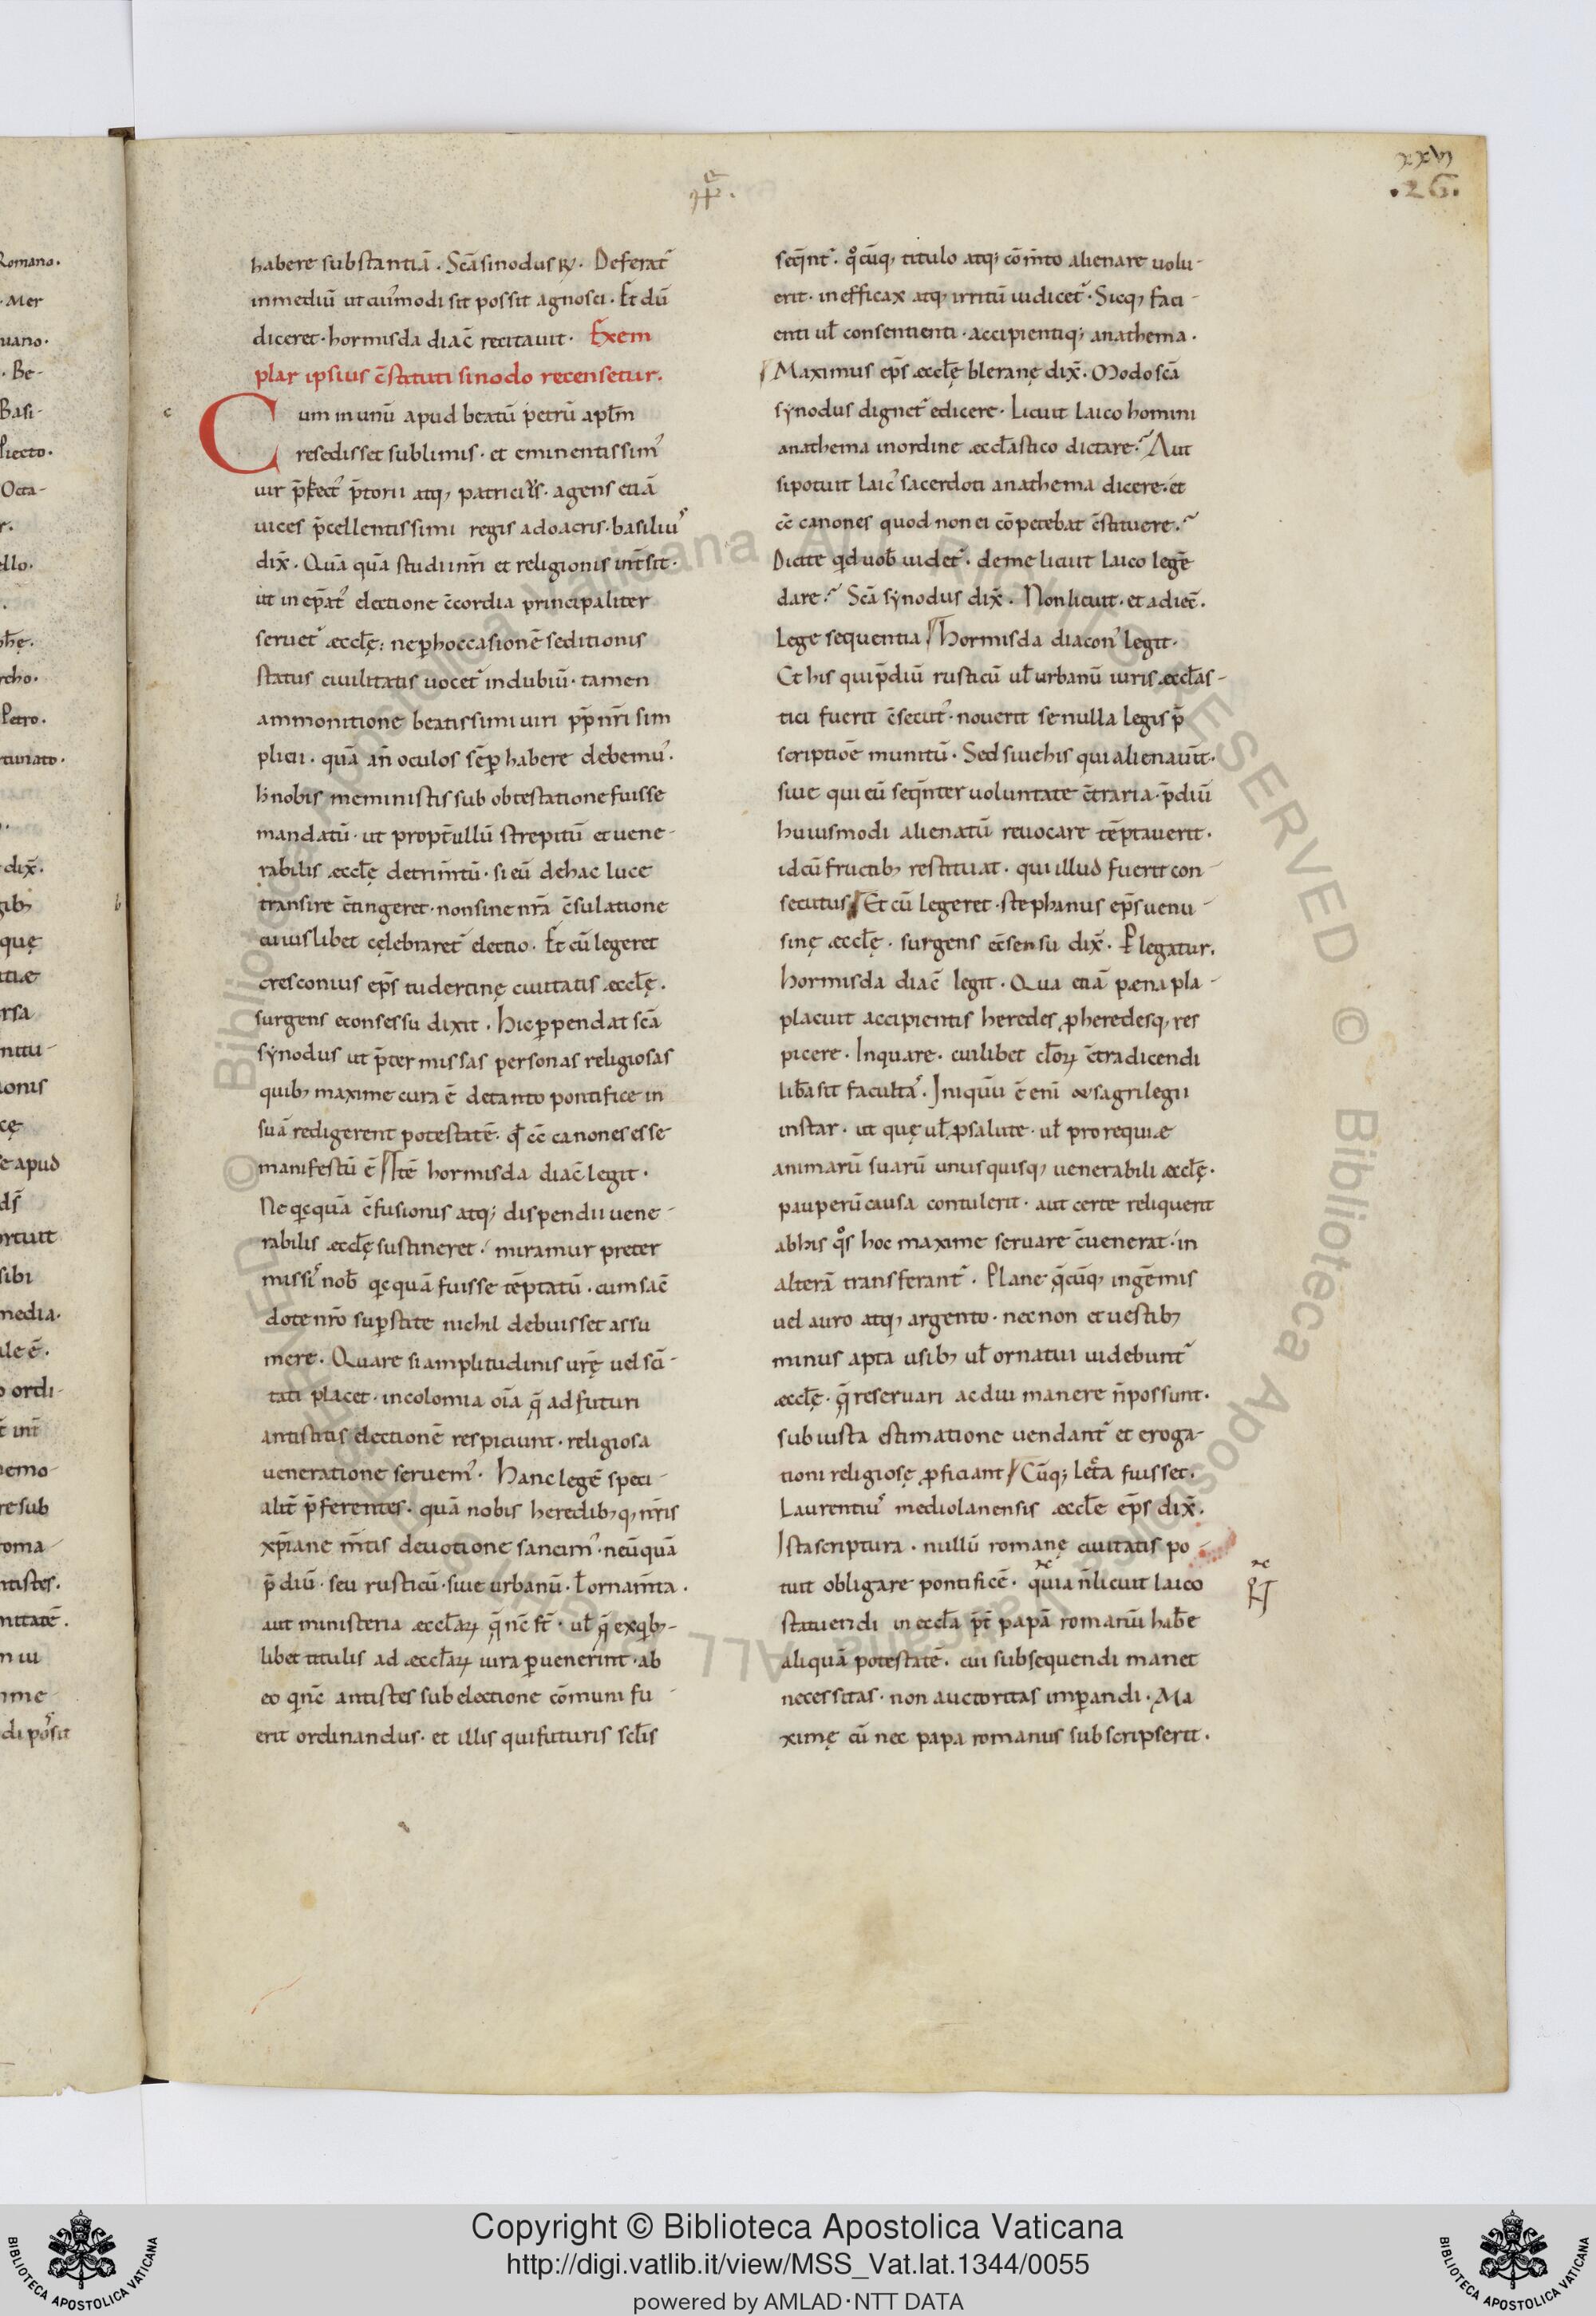 xxvj
.26.
Romano.
. Mer
uano.
. Be-
Basi-
Piecto.
Octa-
r.
llo.
rcho.
Petro.
tunato.
dix̄.
gib;
quę
rsa
nitu-
ionis
e apud
sibi
media.
ale ē.
o ordi-
emo-
re sub
roma-
ntistes.
nitatē.
n ui
di possit
habere substantiā. Scā sinodus ℞. Deferat᷑
in mediū ut cui᷒modi sit possit agnosci. Et dū
diceret. hormisda diac̄ recitauit. Exem
plar ipsius c̄stituti sinodo recensetur.
c
Cum in unū apud beatū petrū apl̄m
resedisset sublimis. et eminentissim᷒
uir p̄fect᷒ p̄torii atq; patricius. agens etiā
uices p̄cellentissimi regis adoacris. basiliu᷒
dix̄. Quā quā studii nr̄i et religionis int̄sit.
ut in ep̄at᷒ electione c̄cordia principaliter
seruet᷑ æccl̄ę: ne ꝑ hoccasionē seditionis
status ciuilitatis uocet᷑ in dubiū. tamen
ammonitione beatissimi uiri pp̄ nr̄i sim
plicii. quā an̄ oculos sēꝑ habere debemu᷒.
h̄ nobis meministis sub obtestatione fuisse
mandatū. ut propt̄ ullū strepitū et uene-
rabilis æccl̄ę detrim̄tū. si eū de hac luce
transire c̄tingeret. non sine nr̄a c̄sulatione
cuiuslibet cęlebraret᷑ electio. Et cū legeret
cresconius ep̄s tudertinę ciuitatis æccl̄ę.
surgens e consessu dixit. Hic ꝑpendat scā
synodus ut p̄termissas personas religiosas
quib; maxime cura ē de tanto pontifice in
suā redigerent potestatē. qđ c̄c̄ canones esse
manifestū ē Itē hormisda diac̄ legit.
Ne qcquā c̄fusionis atq; dispendii uene-
rabilis æccl̄ę sustineret. miramur preter
missi᷒ nob̄ qcquā fuisse tēptatū. cum sac̄
dote nr̄o suꝑstite nichil debuisset assu
mere. Quare si amplitudinis ur̄ę uel sc̄i-
tati placet. incolomia oīa q̄ ad futuri
antistitis electionē respiciunt. religiosa
ueneratione seruem᷒. Hanc legē speci-
alit̄ p̄ferentes. quā nobis heredib;q; nr̄is
xp̄iane m̄tis deuotione sancim᷒. ne ūquā
p̄diū. seu rusticū. siue urbanū. ł ornam̄ta.
aut ministeria æccl̄aꝝ q̄ nc̄ st̄. ul̄ q̄ ex qb;-
libet titulis ad æccl̄aꝝ iura ꝑuenerint. ab
eo q nc̄ antistes sub electione cōmuni fu-
erit ordinandus. et illis qui futuris scl̄is
seq̄nt᷑. qͦcūq; titulo atq; cōm̄to alienare uolu-
erit. inefficax atq; irritū iudicet᷑. Sicq; faci-
enti ul̄ consentienti. accipientiq; anathema.
Maximus ep̄s æccl̄ę bleranę dix̄. Modo scā
synodus dignet᷑ edicere. Licuit laico homini
anathema in ordine æccl̄astico dictare? Aut
si potuit laic᷒ sacerdoti anathema dicere. et
c̄c̄ canones quod non ei cōpetebat c̄stituere?
Dicite qd uob̄ uidet᷑. de me licuit laico legē
dare? Scā synodus dix̄. Non licuit. et adiec̄.
Lege sequentia Hormisda diacon᷒ legit.
Et his qui p̄diū rusticū ul̄ urbanū iuris æccl̄as-
tici fuerit c̄secut᷒. nouerit se nulla legis p̄
scriptiōe munitū. Sed siue his qui alienauīt.
siue qui eū seq̄nter uoluntate c̄traria. p̄diū
huiusmodi alienatū reuocare tēptauerit.
id cū fructib; restituat. qui illud fuerit con-
secutus Et cū legeret. stephanus ep̄s uenu-
sinę æccl̄ę. surgens ec̄sensu dix̄. P̄legatur.
Hormisda diac̄ legit. Qua etiā pæna pla-
placuit accipientis heredes ꝓheredesq; res
picere. Inquare. cuilibet cl̄oꝝ c̄tradicendi
lib̄a sit faculta᷒. Iniquū ē enī & sagrilegii
instar. ut quę ul̄ ꝓ salute. ul̄ pro requiæ
animarū suarū unusquisq; uenerabili æccl̄ę.
pauperū causa contulerit. aut certe reliquerit
ab his qͦs hoc maxime seruare c̄uenerat. in
alterā transferant᷑. Plane q̄cūq; in gēmis
uel auro atq; argento. nec non et uestib;
minus apta usib; ul̄ ornatui uidebunt᷑
æccl̄ę. q̄ reseruari ac diu manere n̄ possunt.
sub iusta estimatione uendant᷑ et eroga-
tioni religiosę ꝓficiant Cūq; lecta fuisset.
Laurentiu᷒ mediolanensis æccl̄e ep̄s dix̄.
Ista scriptura. nullū romanę ciuitatis po-
tuit obligare pontificē. quia n̄ licuit laico
statuendi in eccl̄a p̄t̄ papā romanū hab̄e
aliquā potestatē. cui subsequendi manet
necessitas. non auctoritas imꝑandi. Ma
ximę cū nec papa romanus subscripserit.
© Biblioteca Apostolica Vaticana ALL RIGHTS RESERVED
Copyright © Biblioteca Apostolica Vaticana
http://digi.vatlib.it/view/MSS_Vat.lat.1344/0055
powered by AMLAD·NTT DATA
BIBLIOTECA APOSTOLICA VATICANA
BIBLIOTECA APOSTOLICA VATICANA